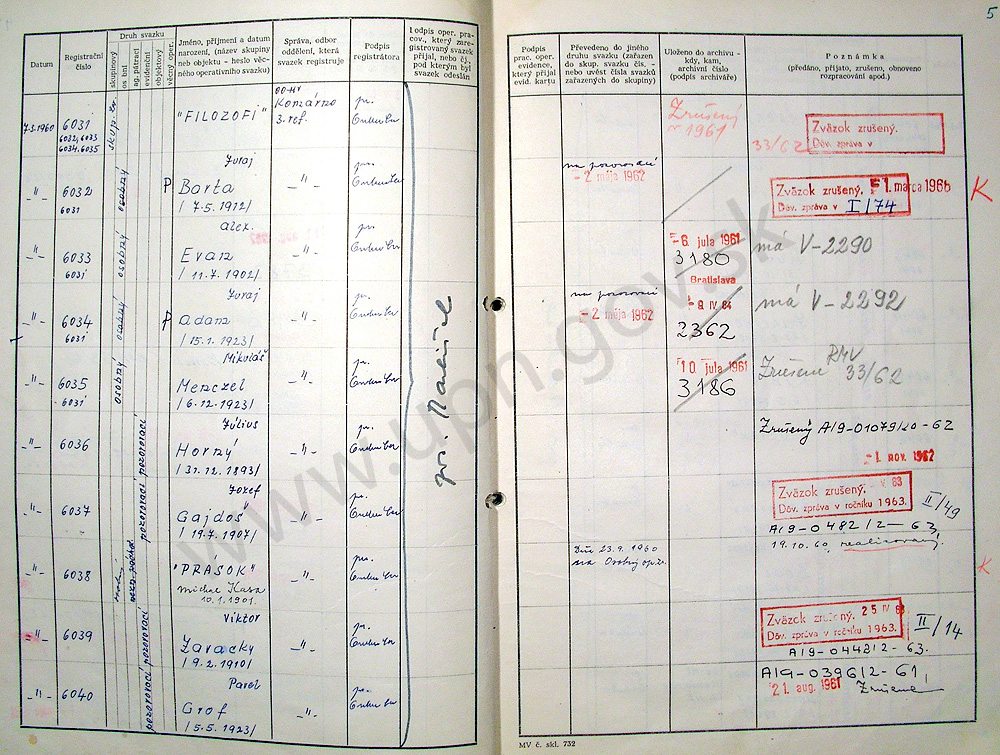 5
Datum
Registrační číslo
Druh svazku
skupinový
osobní
ag. pátrací
evidenční
objektový
věcný oper.
Jméno, příjmení a datum narození, (název skupiny neb objektu - heslo věcného operativního svazku)
Správa, odbor oddělení, která svazek registruje
Podpis registrátora
Podpis oper. pracov., který zaregistrovaný svazek přijal, nebo čj. pod kterým byl svazek odeslán
Podpis prac. oper. evidence, který přijal evid. kartu
Převedeno do jiného druhu svazku (zařazen do skup. svazku čís. - nebo uvést čísla svazků zařazených do skupiny)
Uloženo do archivu - kdy, kam, archivní číslo (podpis archiváře)
Poznámka
(předáno, přijato, zrušeno, obnoveno rozpracování apod.)
7.3.1960
6031
6032, 6033
6034. 6035
"FILOZOFI"
Komárno
3. ref.
Zrušený
1961
33/62
Zväzok zrušený.
Dôv. zpráva v
-"-
6032
6031
osobný
P
Juraj
Barta
/ 7-5. 1912/
-"-
na pozorovací
- 2. mája 1962
Zväzok zrušený. - 1. marca 1966
Dôv. zpráva v I/74
K
-"-
6033
6031
osobný
alex.
Evan
/ 11.7. 1902/
-"-
- 6. júla 1961
3180
Bratislava
má V-2290
-"-
6034
6031
osobný
P
Juraj
Adam
/ 15.1. 1923/
-"-
na pozorovací
- 2. mája 1962
IV 64
2362
má V-2292
-"-
6035
6031
osobný
Mikuláš
Menczel
/ 6.12. 1923/
-"-
10. júla 1961
3186
Zrušené RMV
33/62
-"-
6036
pozorovací
Július
Horný
/ 31. 12. 1893/
-"-
Zrušený A/9-01079/20-62
- 1. nov. 1962
-"-
6037
pozorovací
Jozef
Gajdoš
/ 19.7. 1907/
-"-
Zväzok zrušený.
Dôv. zpráva v ročníku 1963.
II/49
A/9-0482/2-63,
19.10.60, realizovaný.
-"-
6038
"PRÁŠOK"
Michal Kasa
10.1.1901.
-"-
Dňa 23.9. 1960
na Osobný
K
-"-
6039
pozorovací
Viktor
Zavacky
/ 9.2. 1910/
-"-
Zväzok zrušený. 25 IV 63
Dôv. zpráva v ročníku 1963.
II/14
A/9-0442/2-63.
-"-
6040
pozorovací
Pavel
Grof
/ 5.5. 1923/
-"-
A/9-0396/2-61,
21. aug. 1961 Zrušené
MV č. skl. 732
www.upn.gov.sk